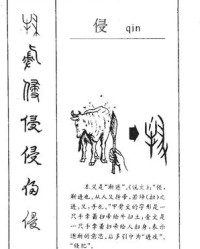 侵 qin
侵
侵
侵
本义是“渐进”。《说文》:“侵,
渐进也,从人又持帚,若埽(扫)之
进,又,手也。”甲骨文的字形是一
只手拿着扫帚给牛扫土;金文是
一只手拿着扫帚给人扫身,表示
逐渐的意思。后多引申为“进攻”、
“侵犯”。